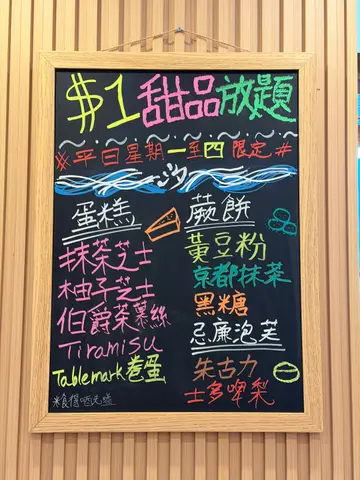 $1甜品放題
※平日星期一至四限定#
汐
蛋糕
抹茶芝士
柚子芝士
伯爵茶慕絲
Tiramisu
Tablemark卷蛋
蕨餅
黃豆粉
京都抹茶
黑糖
忌廉泡芙
朱古力
士多啤梨